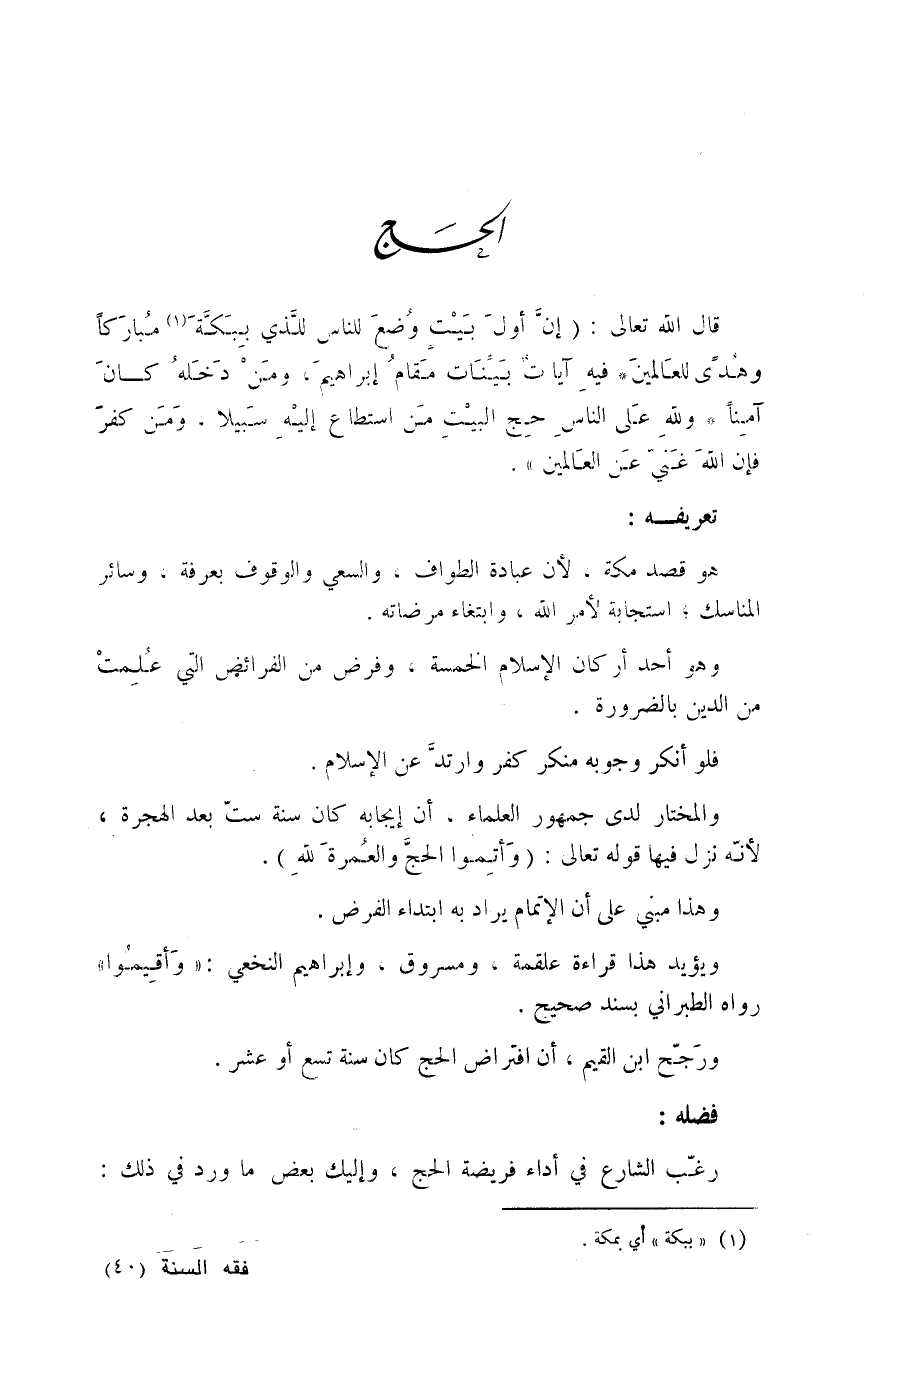 الحَج
قال الله تعالى : ( إنَّ أولَ بَيْتٍ وُضعَ للناسِ للَّذي بِبَكَّةَ (١) مُبارَكاً
وهُدًى للعَالمينَ * فيهِ آياتٌ بَيِّنَات مَقامُ إبراهيمَ ، ومَنْ دَخَلهُ كـــانَ
آمِناً * وللهِ عَلى الناسِ حِج البيْتِ مَن استطاع إليْهِ سَبيلا . وَمَن كفرَ
فإن اللهَ غَنيّ عَنِ العَالمين » .
تعريفـــه :
هو قصد مكة . لأن عبادة الطواف ، والسعي والوقوف بعرفة ، وسائر
المناسك ؛ استجابة لأمر الله ، وابتغاء مرضاته .
وهو أحد أركان الإسلام الخمسة ، وفرض من الفرائض التي عُلِمتْ
من الدين بالضرورة .
فلو أنكر وجوبه منكر كفر وارتدَّ عن الإسلام .
والمختار لدى جمهور العلماء . أن إيجابه كان سنة ستّ بعد الهجرة ،
لأنّه نزل فيها قوله تعالى : ( وَأتِموا الحجَّ والعُمرةَ للهِ ) .
وهذا مبني على أن الإتمام يراد به ابتداء الفرض .
ويؤيد هذا قراءة علقمة ، ومسروق ، وإبراهيم النخعي : « وَأقِيمُوا»
رواه الطبراني بسند صحيح .
ورَجّح ابن القيم ، أن افتراض الحج كان سنة تسع أو عشر .
فضله :
رغّب الشارع في أداء فريضة الحج ، وإليك بعض ما ورد في ذلك :
(١) « ببكة » أي بمكة .
فقه السنة (٤٠)